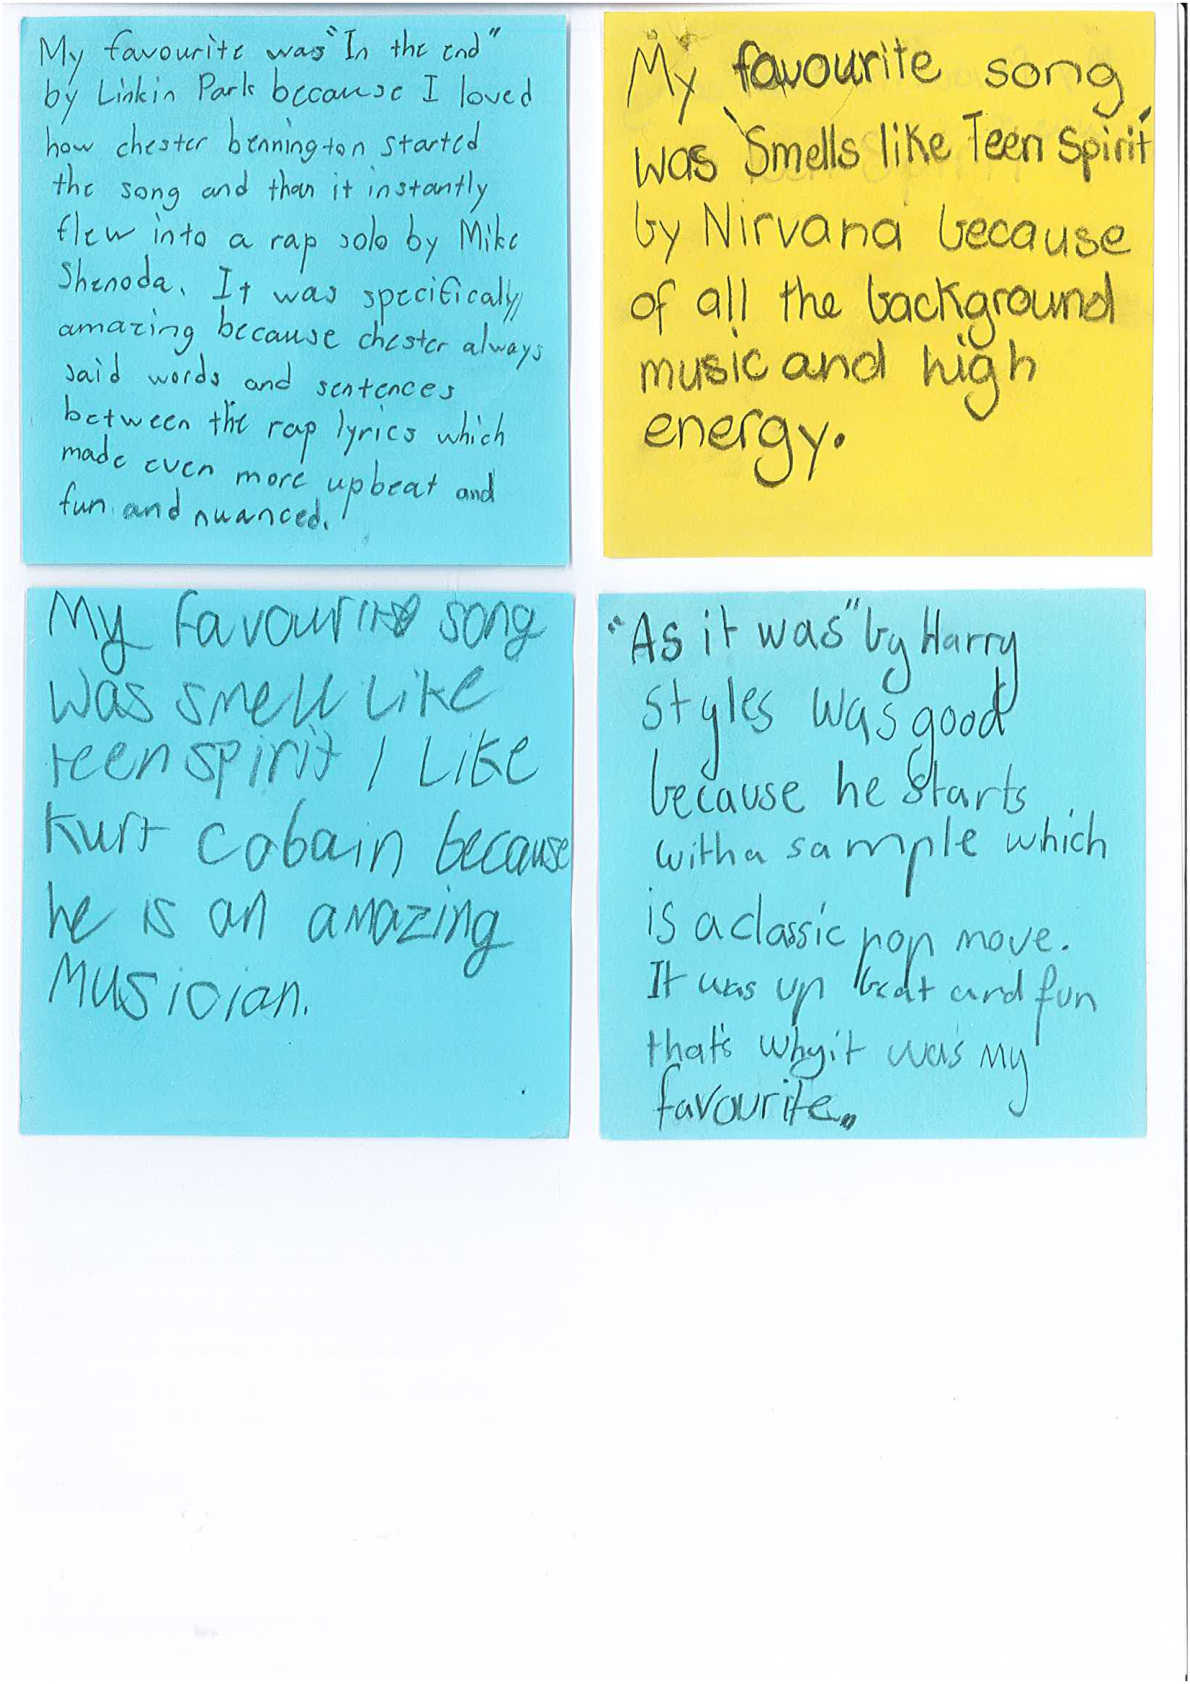 My favourite was "In the end"
by Linkin Park because I loved
how chester bennington started
the song and than it instantly
flew into a rap solo by Mike
Shenoda. It was specifically
amazing because chester always
said words and sentences
between the rap lyrics which
made even more upbeat and
fun and nuanced.
My favourite song
was 'Smells like Teen Spirit'
by Nirvana because
of all the background
music and high
energy.
My favourite song
was smell like
teen spirit I Like
Kurt cobain because
he is an amazing
Musician.
"As it was" by Harry
styles was good
because he starts
with a sample which
is a classic pop move.
It was up beat and fun
that's why it was my
favourite.